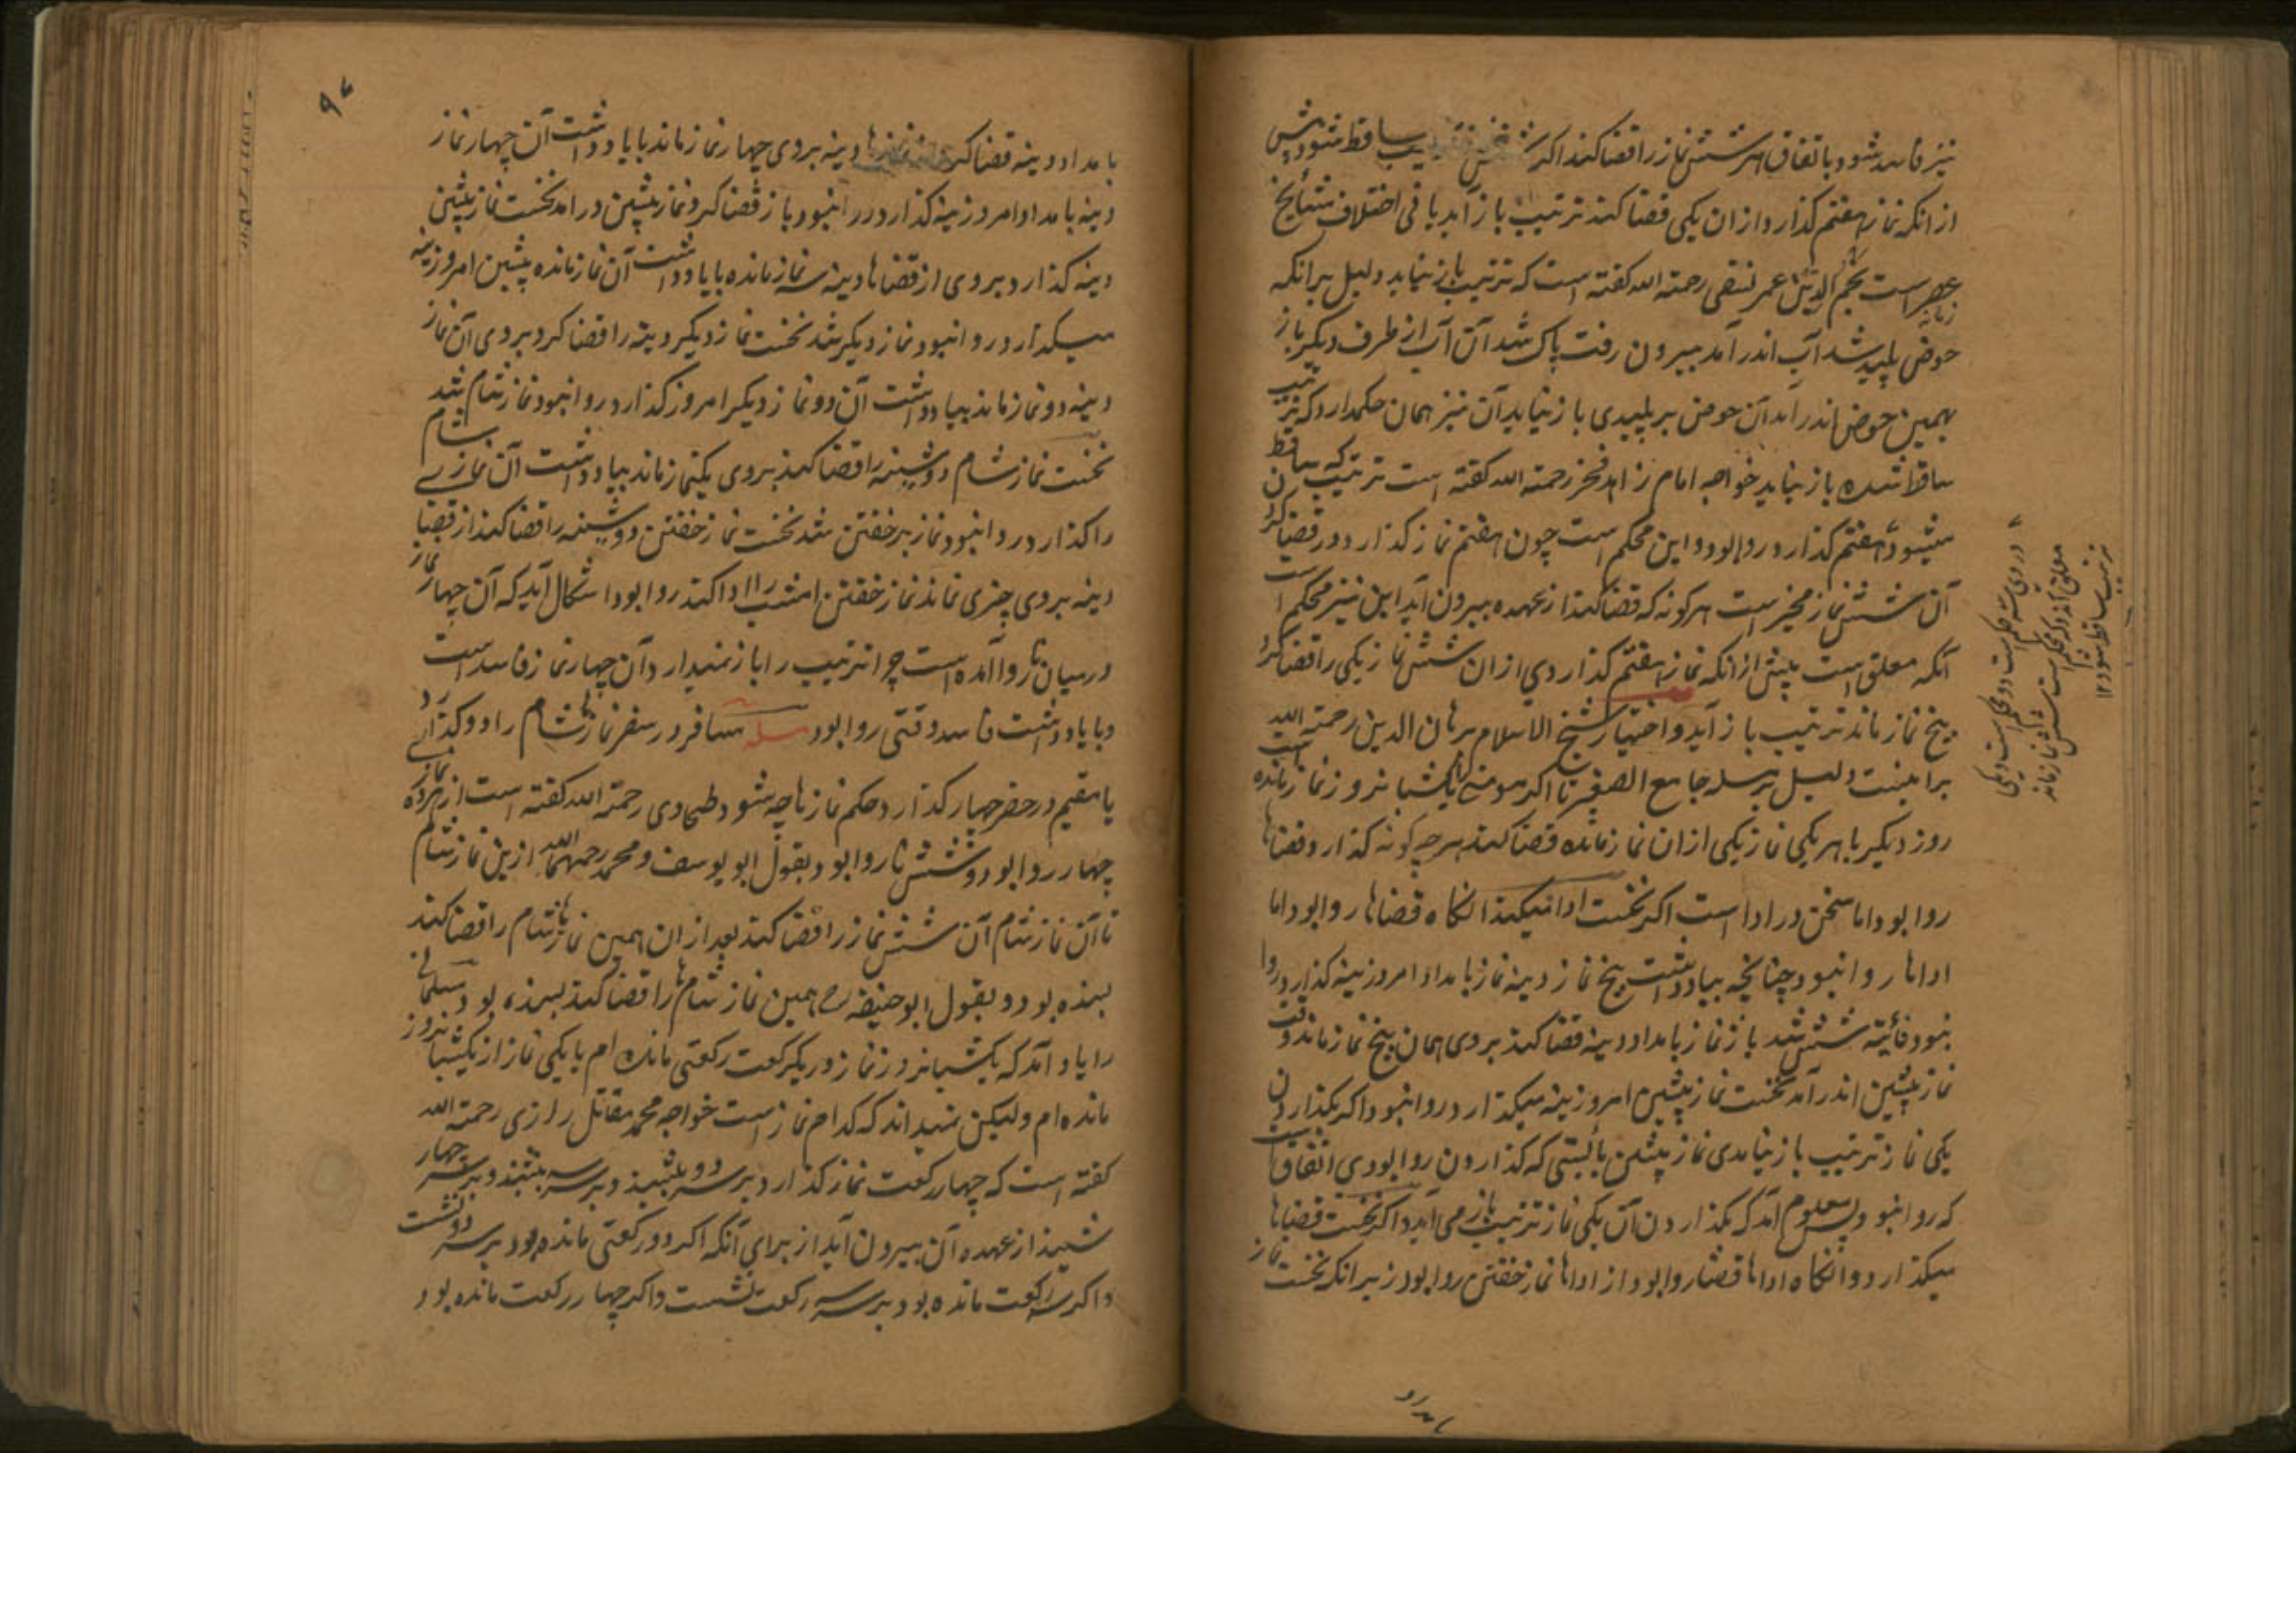 نیز فاسد شود باتفاق هر شش نماز را قضا کند اکر شش ساقط شود پیش
از انکه نماز هفتم کذارد از ان یکی قضا کند ترتیب باز آید یا نی اختلاف مشایخ
عصر است نجم الدین عمر نسفی رحمة الله کفته است که ترتیب باز نیاید دلیل برانکه
حوض پلید شد آب اندر آمد بیرون رفت پاک شد آن آب از طرف دیکر باز
بهمین حوض اندر آمد آن حوض بر پلیدی باز نیاید آن نیز همان حکم دارد که ترتیب
ساقط شده باز نیاید خواجه امام زاهد فخر رحمة الله کفته است ترتیب که ساقط
میشود هفتم کذارد روا بود و این محکم است چون هفتم نماز کذارد در قضا کردن
آن شش نماز مخیر است هر کونه که قضا کند از عهده بیرون آید این نیز محکم است
آنکه معلق است پیش از انکه نماز هفتم کذاردی از ان شش نماز یکی را قضا کرد
پنج نماز ماند ترتیب باز آید و اختیار شیخ الاسلام برهان الدین رحمة الله
براینست دلیل بر مسله جامع الصغیر تا اکر مومنی را یکشبانروز نماز مانده است
روز دیکر با هر یکی نماز یکی از ان نماز مانده قضا کند هر چه کونه کذارد قضاها
روا بود اما سخن در ادا است اکر نخست ادا میکند انکاه قضاها روا بود اما
اداها روا نبود چنانچه بیاد داشت پنج نماز دینه نماز بامداد امروزینه کذارد روا
نبود فائته شش شد باز نماز بامداد دینه قضا کند بروی همان پنج نماز ماند وقت
نماز پیشین اندر آمد نخست نماز پیشین امروزینه میکذارد روا نبود اکر بکذاردن
یکی نماز ترتیب باز نیامدی نماز پیشین بایستی که کذاردن روا بودی اتفاق است
که روا نبود پس معلوم آمد که بکذاردن آن یکی نماز ترتیب باز می آید و اکر نخست قضاها
میکذارد و انکاه اداها قضا روا بود از اداها نماز خفتن روا بود زیرانکه نخست نماز
ترتیب ساقط شود ۱۲
۹۷
بامداد دینه قضا کرد دینه بروی چهار نماز ماند با یادداشت آن چهار نماز
دینه بامداد امروزینه کذارد روا نبود باز قضا کرد و نماز پیشین در امد نخست نماز پیشین
دینه کذارد بروی از قضاها دینه سه نماز مانده با یادداشت آن نماز مانده پیشین امروزینه
میکذارد روا نبود نماز دیکر شد نخست نماز دیکر دینه را قضا کرد بروی آن نماز
دینه دو نماز ماند بیادداشت آن دو نماز دیکر امروز کذارد روا نبود نماز شام شد
نخست نماز شام دوشینه را قضا کند بروی یکنماز ماند بیادداشت آن نماز شام
را کذارد روا نبود نماز خفتن شد نخست نماز خفتن دوشینه را قضا کند از قضا
دینه بروی چیزی نماند نماز خفتن امشب را ادا کند روا بود اشکال آید که آن چهار نماز
در میان روا آمده است چرا ترتیب را باز نمیدارد آن چهار نماز فاسد است
و با یادداشت فاسد وقتی روا بود مسله مسافر در سفر نمازشام را دو کذارد
یا مقیم در حضر چهار کذارد حکم نمازها چه شود طحاوی رحمة الله کفته است از نماز
چهار روا بود و شش ناروا بود بقول ابو یوسف و محمد رحمهما الله ازین نماز شام
تا آن نماز شام آن شش نماز را قضا کند بعد از ان همین نماز شام را قضا کند
بسنده بود و بقول ابو حنیفه رح همین نماز شامها را قضا کند بسنده بود مسلمانی
را یاد آمد که یکشبانروز نماز در یک رکعت رکعتی مانده ام یا یکی نماز از یکشبانروز
مانده ام ولیکن نمیداند که کدام نماز است خواجه محمد مقاتل رازی رحمة الله
کفته است که چهار رکعت نماز کذارد بر سر دو بنشیند و بر سر سه بنشیند و بر سر چهار
نشیند از عهده آن بیرون آید از برای آنکه اکر دو رکعتی مانده بود بر سر دو نشست
و اکر سه رکعت مانده بود بر سر سه رکعت نشست و اکر چهار رکعت مانده بود